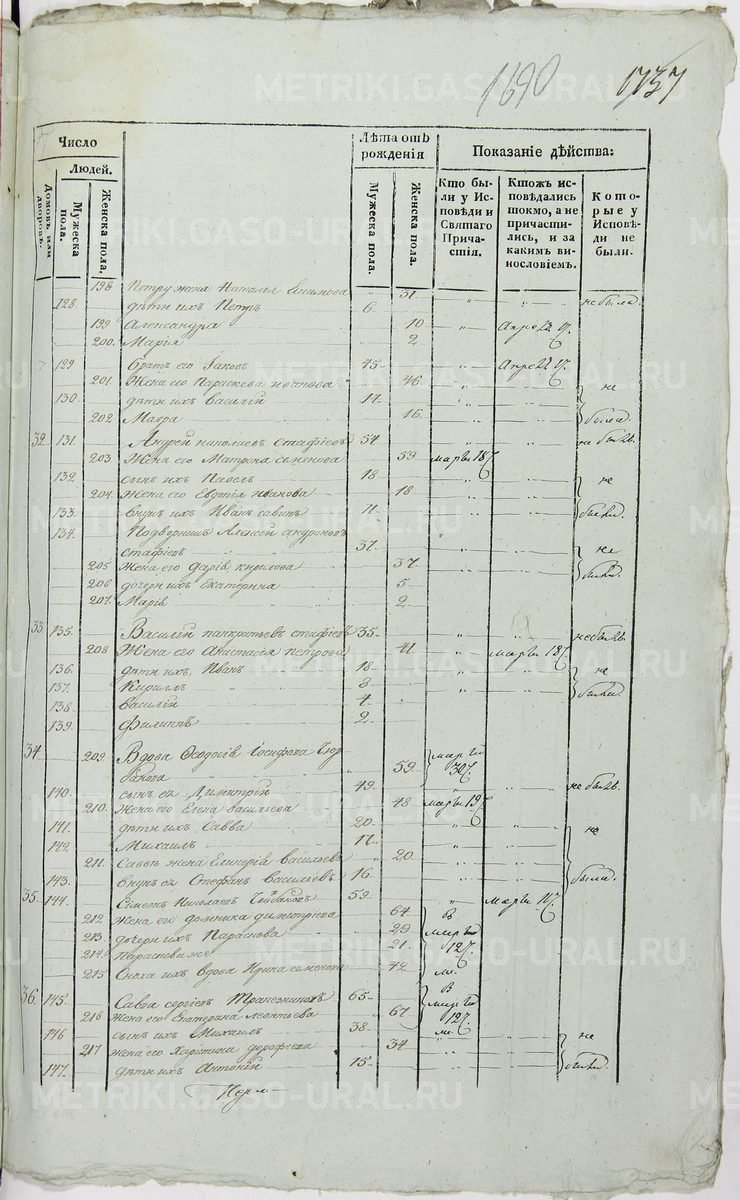 1690 1737
Число
Людей.
Домовъ или дворовъ.
Мужеска пола.
Женска пола.
Лѣта отъ рожденія
Мужеска пола.
Женска пола.
Показаніе дѣйства:
Кто были у Исповѣди и Святаго Причастія.
Ктожъ исповѣдались токмо, а не причастились, и за какимъ винословіемъ.
Которые у Исповѣди не были.
198 Петру жена Наталья 31 не была.
128. дѣти ихъ Петръ 6.
199 Александра 10
200. Марія 2
129 братъ его Іаковъ 45
201. Жена его Параскева иванова 46 не
130. дѣти ихъ василій 14
202 Мавра 16. была
32. 131. Андрей николаевъ стафіевъ 54 не былъ
203 Жена его Матрона семенова 59 марта 18
132. сынъ ихъ Павелъ 18 не
204 Жена его Евдокія иванова 18
133. внукъ ихъ Иванъ савинъ 11 были.
134. Подворникъ Алексѣй андроновъ
стафіевъ 37 не
205 Жена его Дарія кирилова 37
206 дочери ихъ Екатерина 5 были.
207. Марія 2
33. 135. Василій панкратьевъ стафіевъ 35 не былъ.
208 Жена его Анастасія петрова 41 марта 18
136. дѣти ихъ Иванъ 18 не
137. Кириллъ 8 были.
138 василій 4
139. филиппъ 2
34. 209. Вдова Ѳеодосія Іосифова
59 марта 30
140. сынъ ея Димитрій 49 не былъ.
210. Жена его Елена васильева 48 марта 19
141. дѣти ихъ Савва 20. не
142. Михаилъ 17
211. Савы жена васильева 20
143. внукъ ея Стефанъ васильевъ 16. была.
35. 144. Симеонъ Николаевъ 59
212 Жена его домника димитріева 64 В
213 дочери ихъ Параскова 29 марта
214. Параскевы же 21. 12
215 Сноха ихъ вдова Ирина семенова 42
36. 145. Савва сергѣевъ 65 В
216 Жена его Екатерина леонтьева 67 марта 12
146 сынъ ихъ Михаилъ 38
217 Жена его Христина дорофеева 34 не
147. дѣти ихъ Антоній 15 были.
METRIKI.GASO-URAL.RU